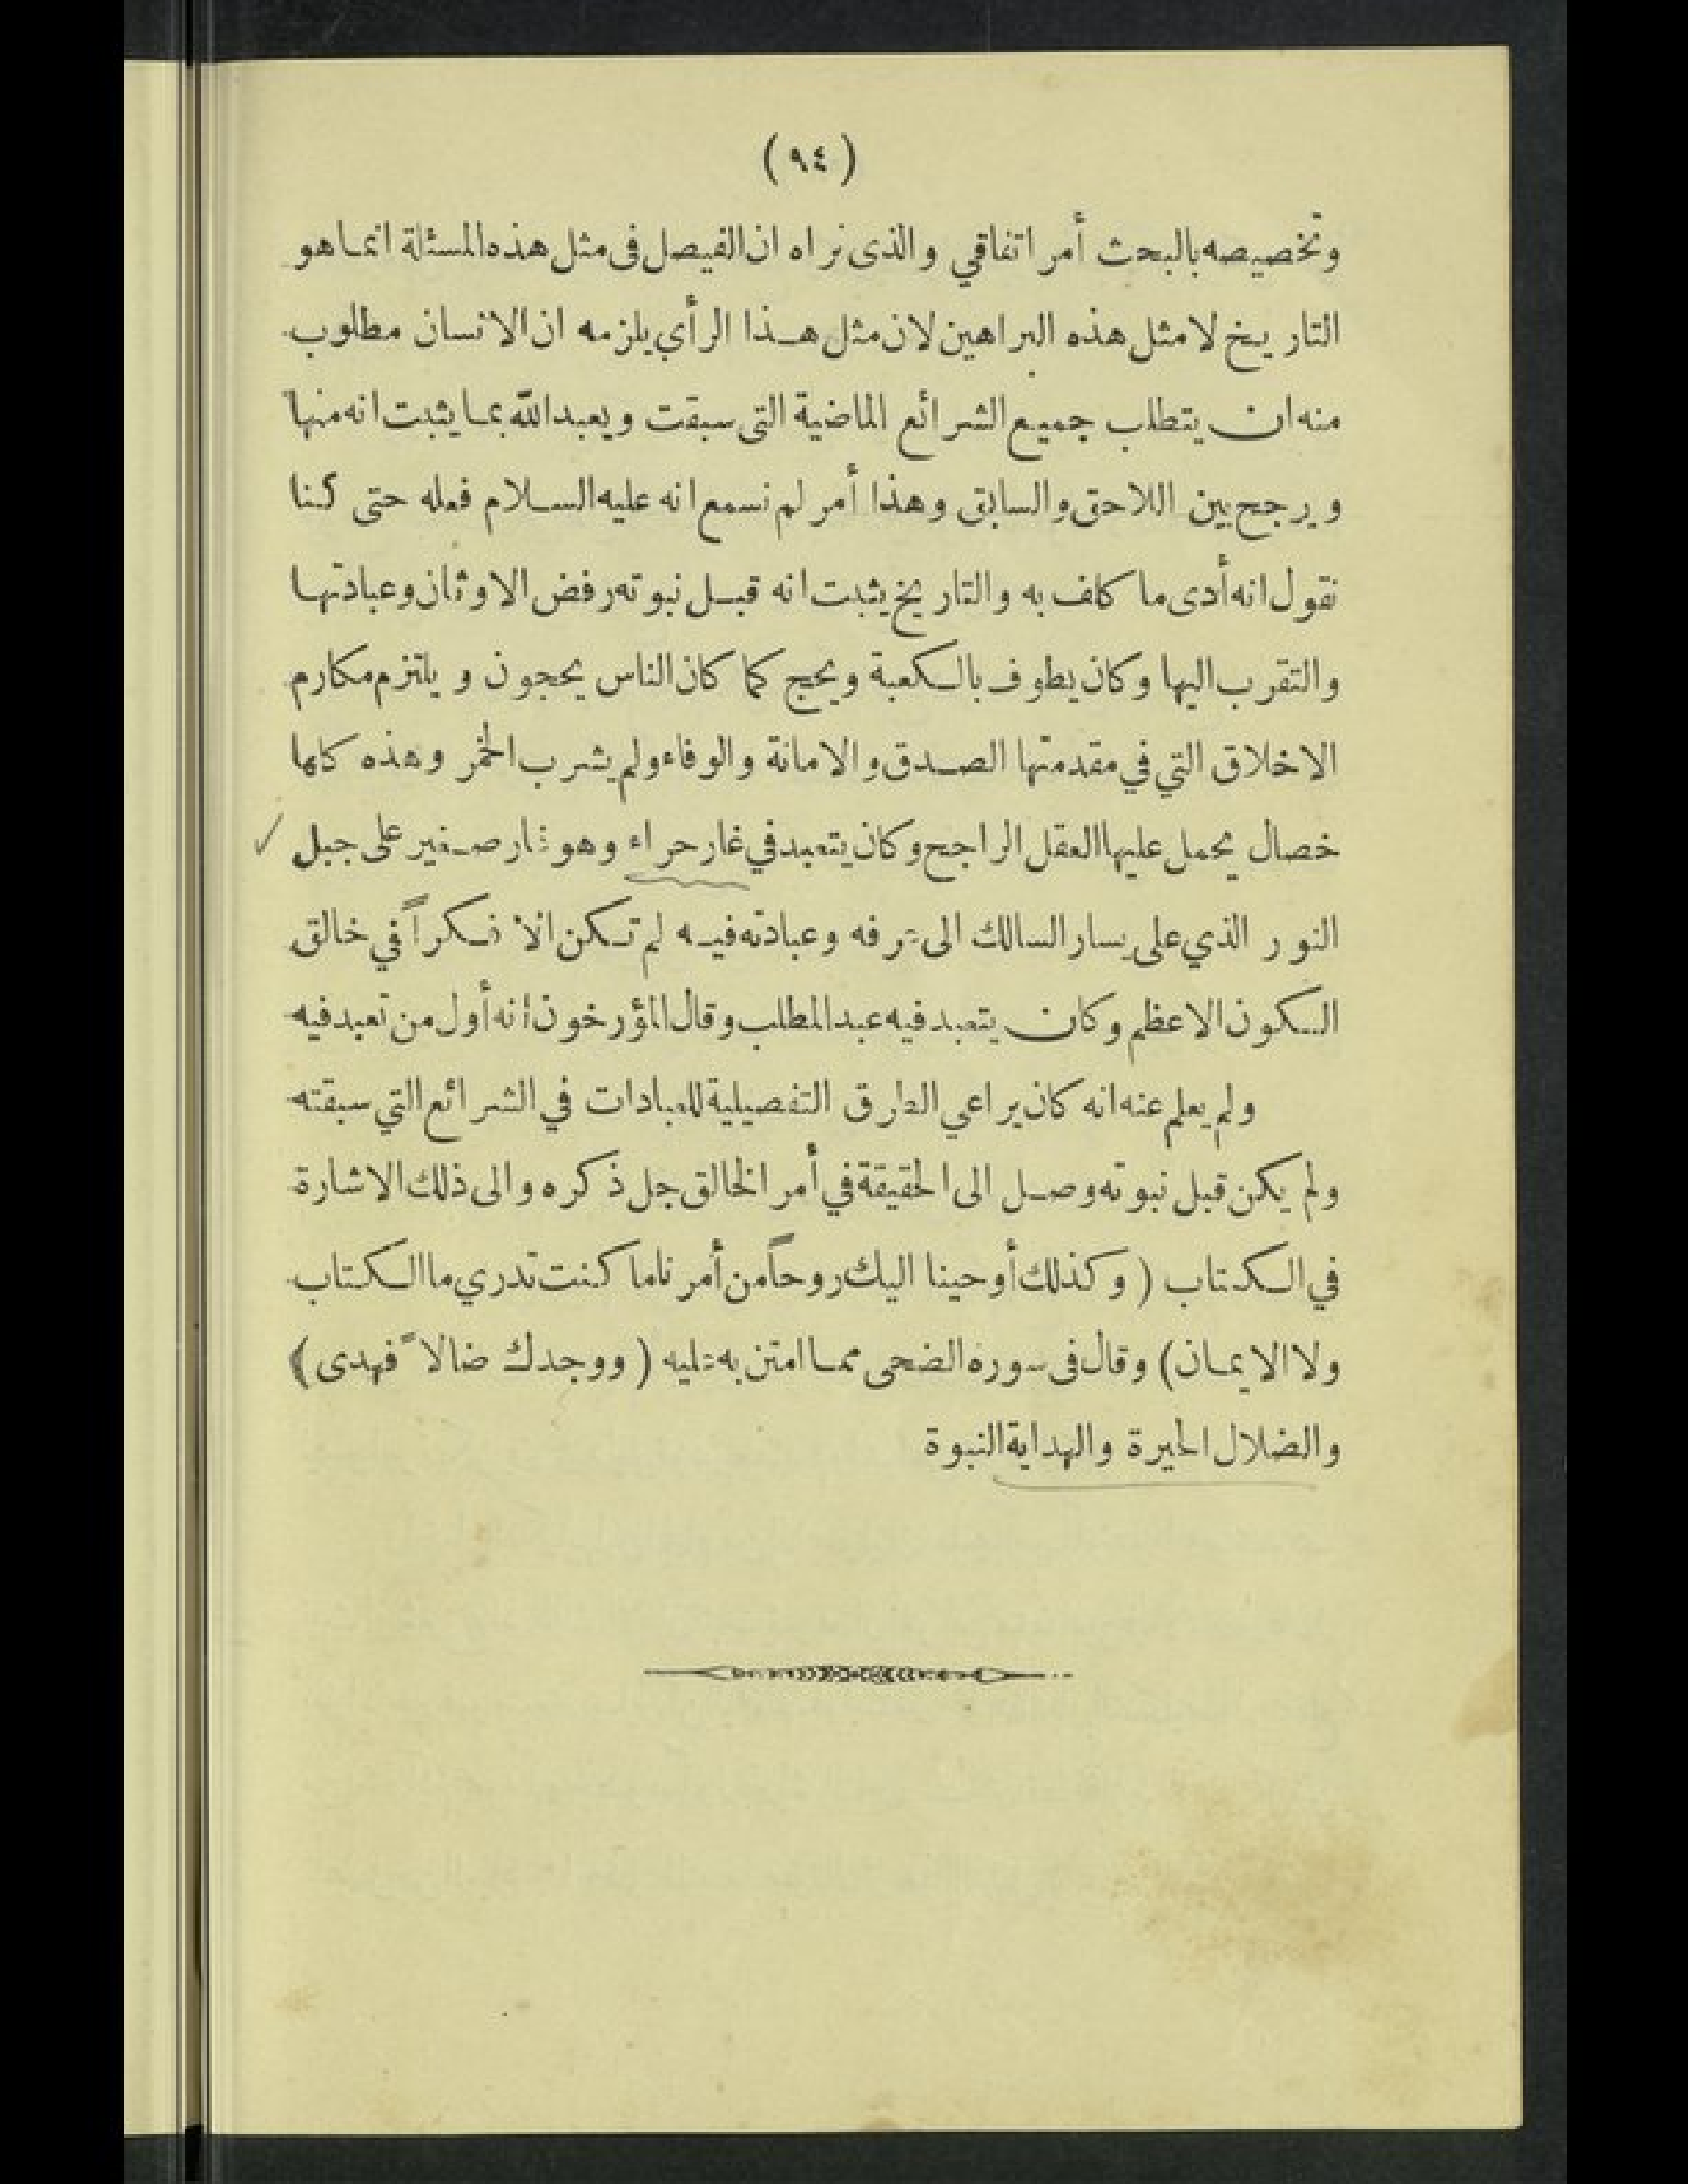 (٩٤)
وتخصيصه بالبحث أمر اتفاقي والذى نراه ان الفيصل فى مثل هذه المسئلة انما هو
التاريخ لا مثل هذه البراهين لان مثل هذا الرأي يلزمه ان الانسان مطلوب
منه ان يتطلب جميع الشرائع الماضية التى سبقت ويعبد الله بما يثبت انه منها
ويرجح بين اللاحق والسابق وهذا أمر لم نسمع انه عليه السلام فعله حتى كنا
نقول انه أدى ما كلف به والتاريخ يثبت انه قبل نبوته رفض الاوثان وعبادتها
والتقرب اليها وكان يطوف بالكعبة ويحج كما كان الناس يحجون ويلتزم مكارم
الاخلاق التي في مقدمتها الصدق والامانة والوفاء ولم يشرب الخمر وهذه كلها
خصال يحمل عليها العقل الراجح وكان يتعبد في غار حراء وهو غار صغير على جبل
النور الذي على يسار السالك الى عرفه وعبادته فيه لم تكن الا فكراً في خالق
الكون الاعظم وكان يتعبد فيه عبد المطلب وقال المؤرخون انه أول من تعبد فيه
ولم يعلم عنه انه كان يراعي الطرق التفصيلية للعبادات في الشرائع التي سبقته
ولم يكن قبل نبوته وصل الى الحقيقة في أمر الخالق جل ذكره والى ذلك الاشارة
في الكتاب (وكذلك أوحينا اليك روحاً من أمرنا ما كنت تدري ما الكتاب
ولا الايمان) وقال فى سورة الضحى مما امتن به عليه (ووجدك ضالاً فهدى)
والضلال الحيرة والهداية النبوة